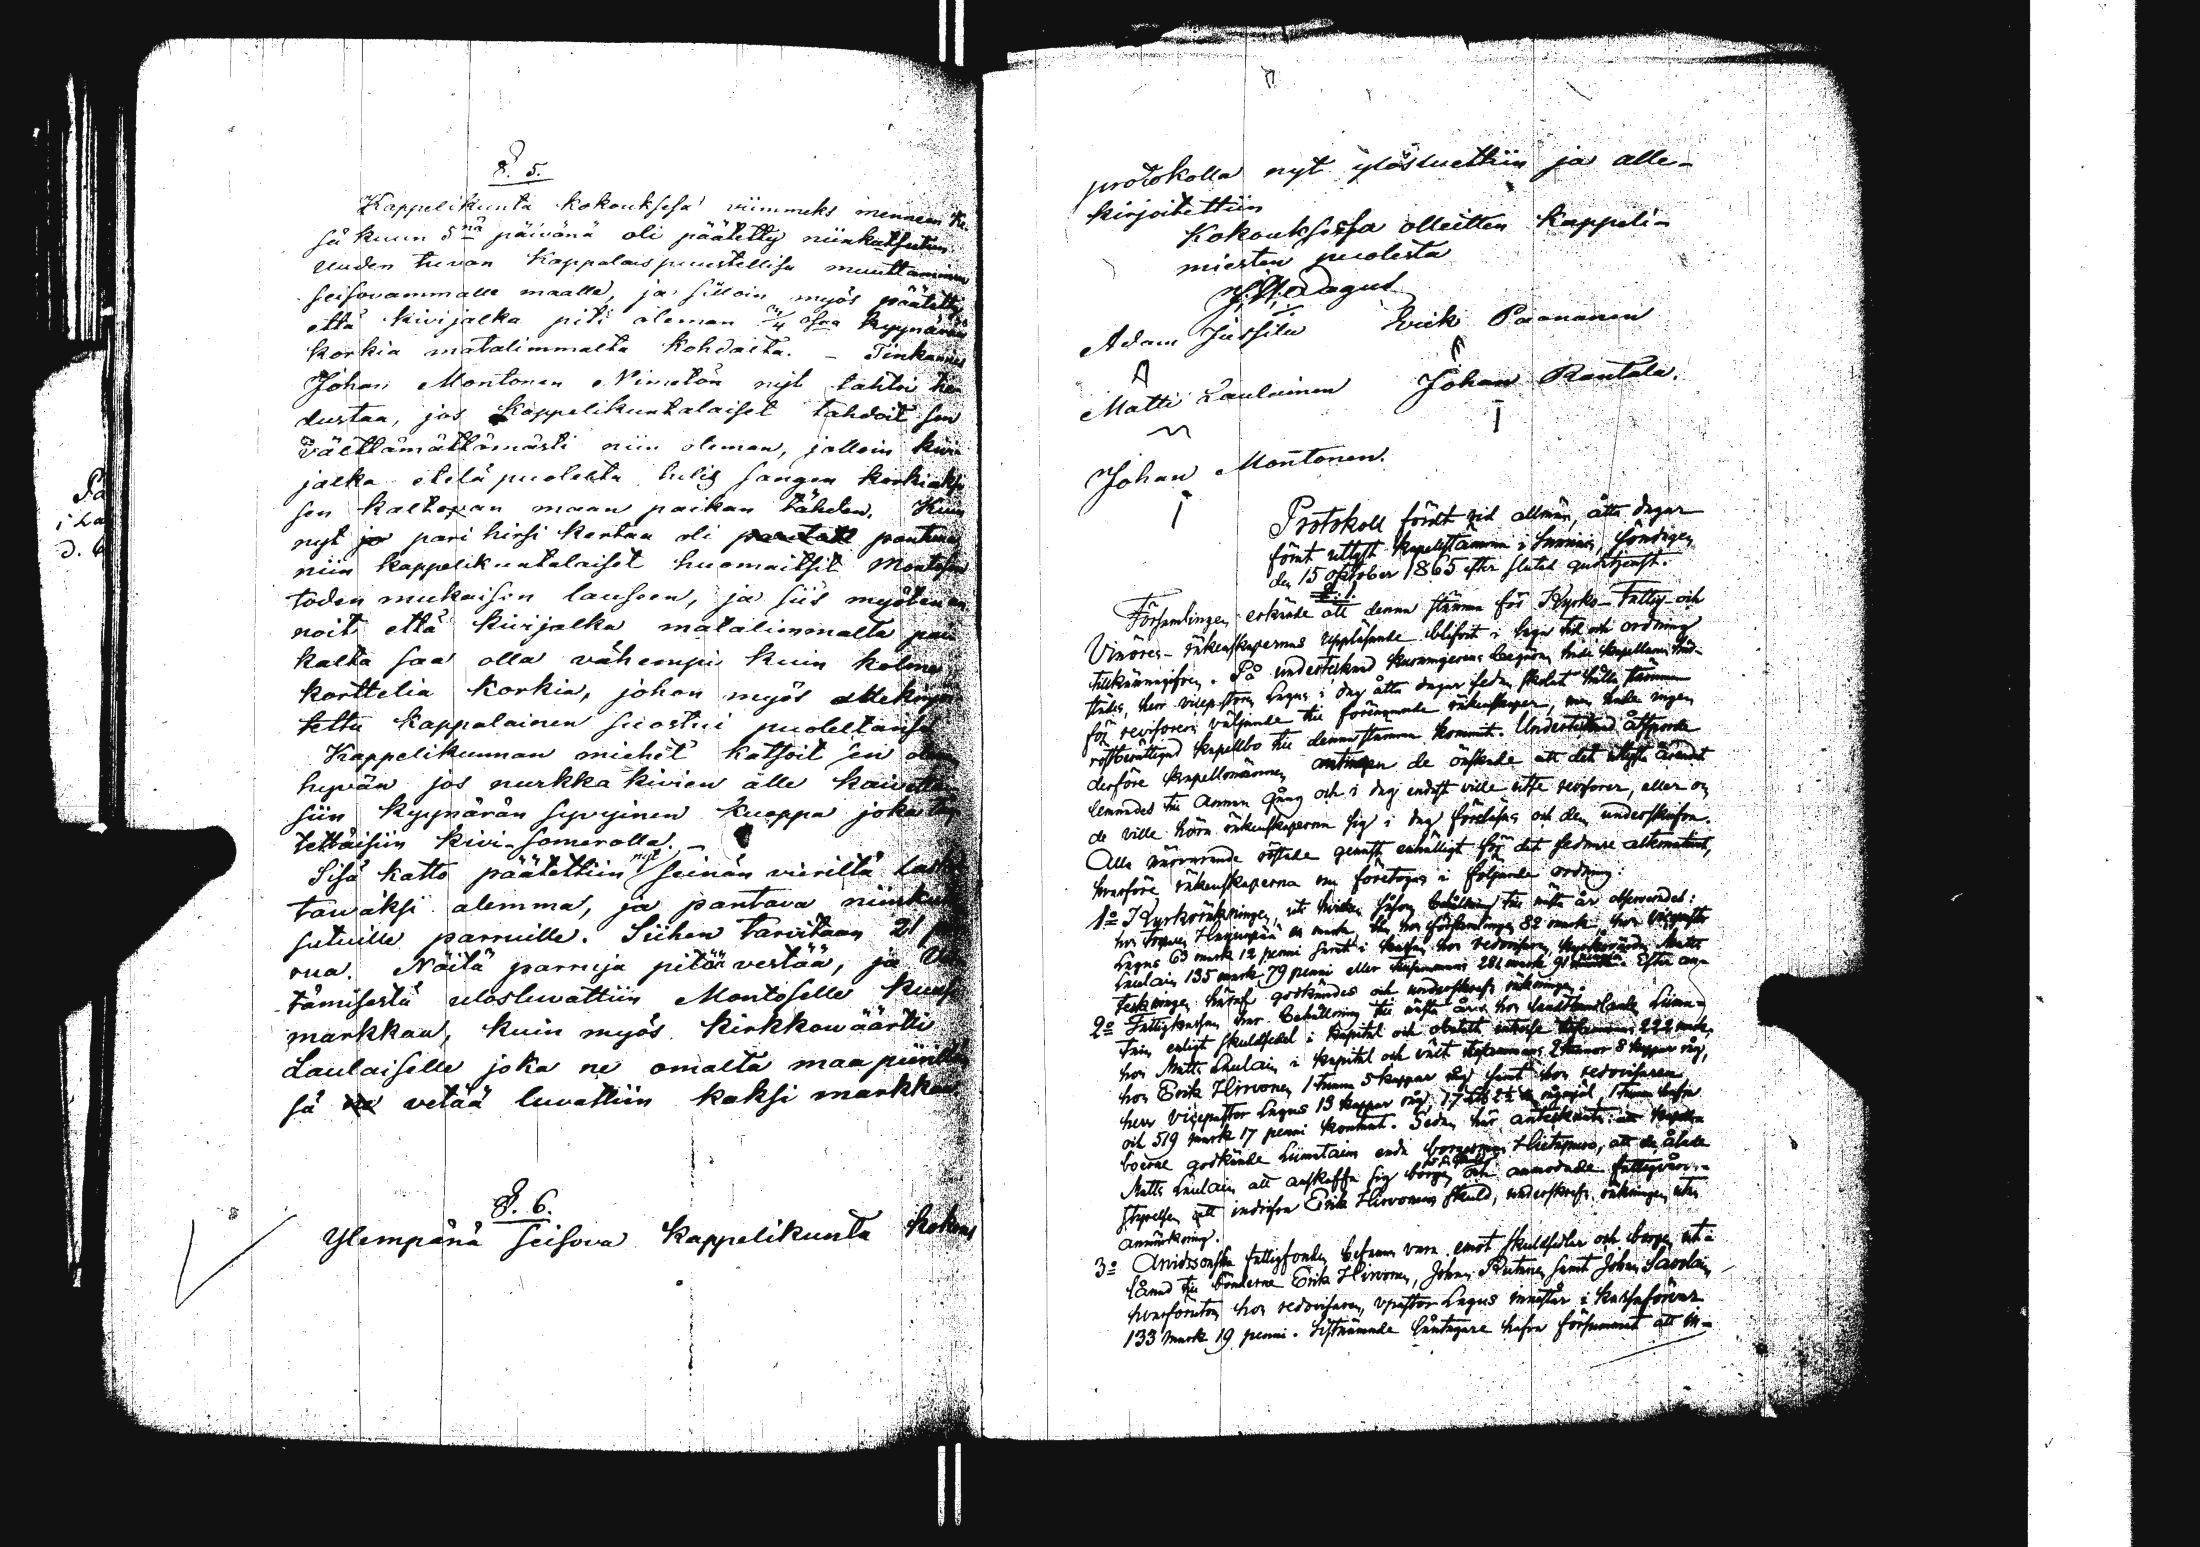 §. 5.
Kappelikunta kokouksesa viimmeks menneen Ke-
sä kuun 5nä päivänä oli päätetty niinkutsutun
uuden tuvan Kappalais puustellisa muuttaminen
seisovammalle maalle, ja silloin myös päätetty
että kivijalka piti oleman 3/4 osaa kyynärää
korkia matalimmalta kohdalta. –
Johan Montonen Nimetön nyt tahtoi
dustaa, jos Kappelikuntalaiset tahdoit sen
välttämättömästi niin oleman, jolloin kivi
jalka etelä puolelta tulis sangen korkiaksi
sen kaltevan maan paikan tähden. Kuin
nyt jo pari hirsi kertaa oli pantuna
niin kappelikuntalaiset huomaitsit Montosen
toden mukaisen lauseen, ja siis myöten an
noit että kivijalka matalimmalta pai
kalta saa olla vähempi kuin kolme
korttelia korkia, johon myös allekirjoi
tettu Kappalainen suostui puoleltansa
Kappelikunnan miehet katsoit sen olevan
hyvän jos nurkka kivien alle kaivettai
siin kyynärän syvyinen kuoppa joka täy
tettäisiin kivi-somerolla. –
Sisä katto päätettiin nyt seinän vieriltä lasket
tavaksi alemma, ja pantava niinkut
sutuille parruille. Siihen tarvitaan 21 par
rua. Näitä parruja pitää vestää, ja
tämisestä uloslu vattiin Montoselle kuusi
markkaa, kuin myös kirkkowäärtti
Laulaiselle joka ne omalta maa piiriltän
sä vetää luvattiin kaksi markkaa.
§. 6.
Ylempänä seisova kappelikunta kokous
protokolla nyt ylösluettiin ja alle-
kirjoitettiin
Kokouksessa olleitten kappeli-
miesten puolesta
Adam Jussila Erik Paananen
Matti Laulainen Johan Rantala.
Johan Montonen.
Protokoll fördt vid allmän, åtta dagar
förut utlyst kapellstämma i Sumiais, söndagen
den 15 oktober 1865 efter slutad gudstjenst.
§. 1.
Församlingen erkände att denna stämma för Kyrko- Fattig- och
Vinöres- räkenskapernas uppläsande blifvit i laga tid och ordning
tillkännagifven. På undertecknad begäran hade kapellanen
städes, herr vicepastorn Lagus i dag åtta dagar sedan skolat hålla stämma
för revisorers väljande till förenämnde räkenskaper, men hade ingen
röstberättigad kapellbo till denna stämma kommit. Undertecknad åtsporde
derföre kapellomännen antingen de önskade att det utlysta ärendet
lemnades till annan gång och i dag endast ville utse revisorer, eller om
de ville höra räkenskaperna sig i dag föreläsas och dem underskrifva.
Alla närvarande röstade genast enhälligt för det sednare alternativet,
hvarföre räkenskaperna nu företogos i följande ordning:
1o Kyrkoräkningen, uti hvilken såsom behållning till nästa år observerades:
hos församlingen 82 mark, hos vicepastor
Lagus 63 mark 12 penni samt i kassan hos redovisaren, kyrkovärden Matts
Laulain 135 mark 79 penni eller tillsammans 281 mark 91 penni. Efter an-
teckningen häraf godkändes och underskrefs räkningen.
2o Fattigkassan har behållning till nästa år: hos
enligt skuldsedel i kapital och obetalt intresse 222 mark,
hos Matts Laulain i kapital och växt tillsammans 2 tunnor 8 kappar råg,
hos Erik Hirvonen 1 tunna 5 kappar råg samt hos redovisaren
herr vicepastor Lagus 13 kappar råg, 1 tunna hafra
och 519 mark 17 penni kontant. Sedan här antecknats att kapell-
boerne godkände Liimatains enda borgesman Hietamura, att de ålade
Matts Laulain att anskaffa sig borgen och anmodade fattigvårds-
styrelsen att indrifva Erik Hirvonens skuld, underskrefs räkningen utan
anmärkning.
3o Arvidssonska fattigfonden befanns vara emot skuldsedlar och borgen ut-
lånad till bönderne Erik Hirvonen, Johan Rutanen samt Johan Savolain,
hvarförutom hos redovisaren, vpastor Lagus innestår i kassaförvar
133 mark 19 penni. Sistnämnde låntagare hafva försummat att in-